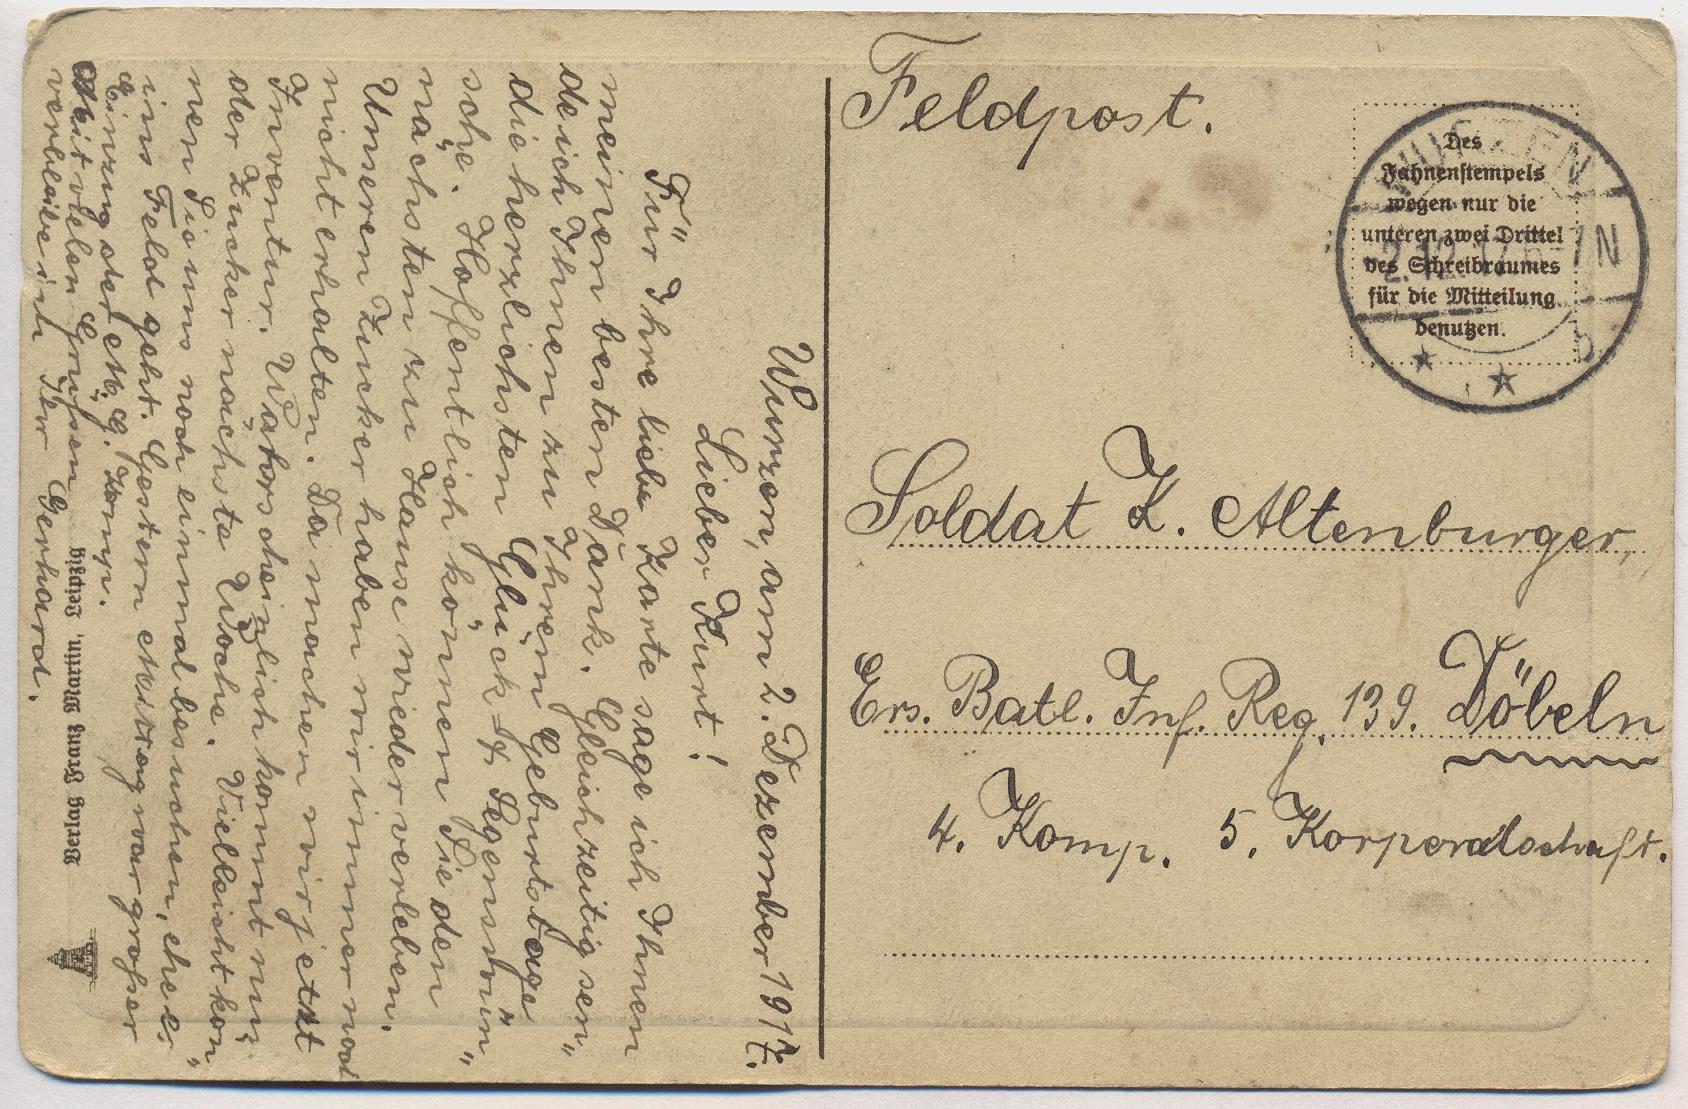 Feldpost.
WURZEN
2.12.17.6-7N
Des
Fahnenstempels
wegen nur die
unteren zwei Drittel
des Schreibraumes
für die Mitteilung
benutzen.
Soldat K. Altenburger,
Ers. Batl. Inf. Reg. 139. Döbeln
4. Komp. 5. Korporalschaft.
Wurzen, am 2. Dezember 1917.
Lieber Kurt!
Für Ihre liebe Karte sage ich Ihnen
meinen besten Dank. Gleichzeitig sen"
de ich Ihnen zu Ihrem Geburtstage
die herzlichsten Glück- u. Segenswün"
sche. Hoffentlich können Sie den
nächsten zu Hause wieder verleben.
Unseren Zucker haben wir immer noch
nicht erhalten. Da machen wir jetzt
Inventur. Wahrscheinlich kommt nun
der Zucker nächste Woche. Vielleicht kön"
nen Sie uns noch einmal besuchen, ehe es
ins Feld geht. Gestern Mittag war großer
Einzug der M. G. Komp.
Mit vielen Grüßen
verbleibe ich Ihr Gerhard.
Verlag Franz Martin, Leipzig